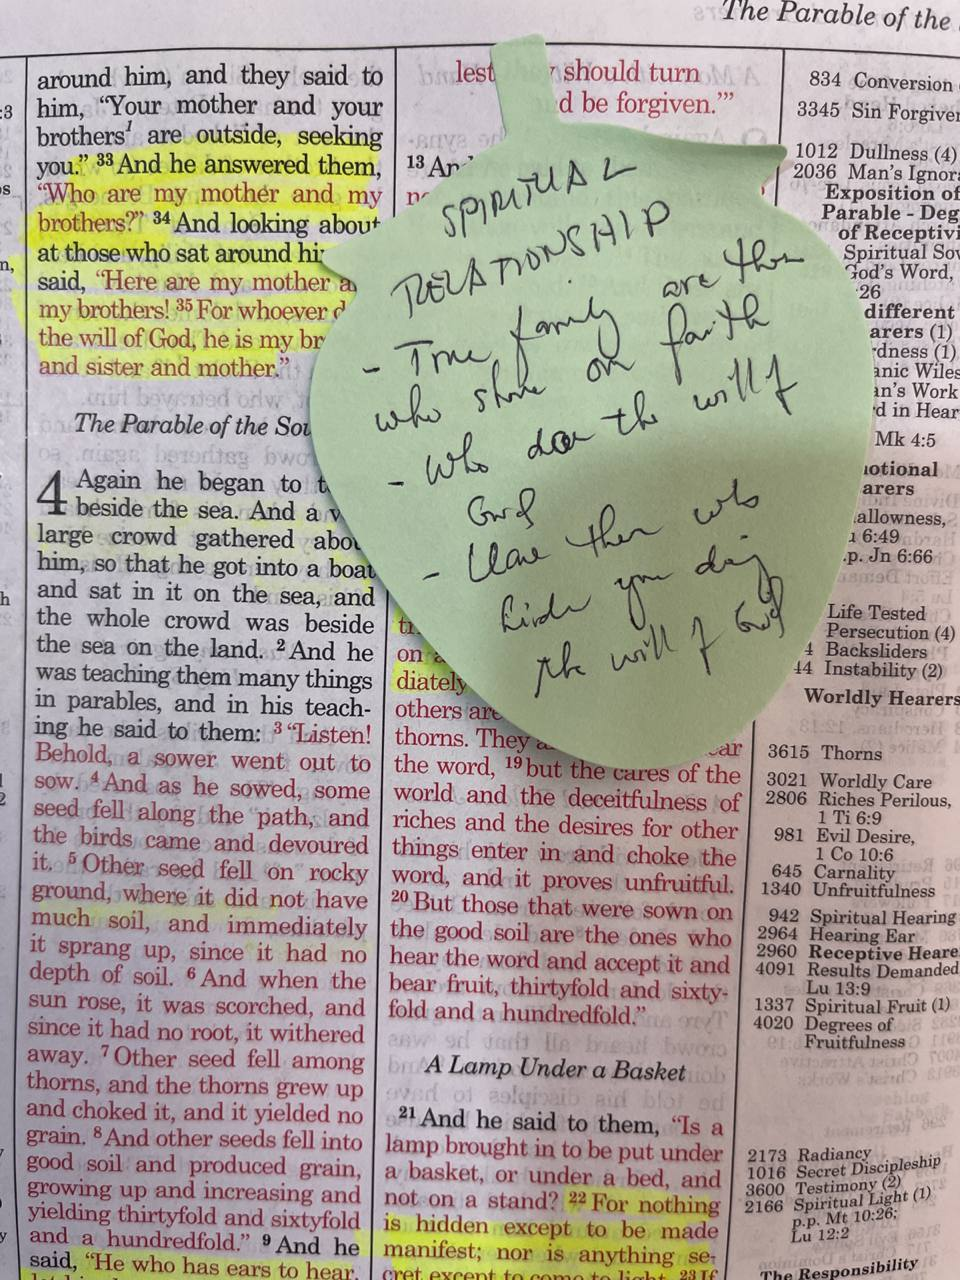 The Parable of the
around him, and they said to
him, “Your mother and your
brothers¹ are outside, seeking
you.” ³³ And he answered them,
“Who are my mother and my
brothers?” ³⁴ And looking about
at those who sat around
said, “Here are my mother
my brothers! ³⁵ For whoever
the will of God, he is my
and sister and mother.”
The Parable of the
4 Again he began to
beside the sea. And a
large crowd gathered
him, so that he got into a boat
and sat in it on the sea, and
the whole crowd was beside
the sea on the land. ² And he
was teaching them many things
in parables, and in his teach-
ing he said to them: ³ “Listen!
Behold, a sower went out to
sow. ⁴ And as he sowed, some
seed fell along the path, and
the birds came and devoured
it. ⁵ Other seed fell on rocky
ground, where it did not have
much soil, and immediately
it sprang up, since it had no
depth of soil. ⁶ And when the
sun rose, it was scorched, and
since it had no root, it withered
away. ⁷ Other seed fell among
thorns, and the thorns grew up
and choked it, and it yielded no
grain. ⁸ And other seeds fell into
good soil and produced grain,
growing up and increasing and
yielding thirtyfold and sixtyfold
and a hundredfold.” ⁹ And he
said, “He who has ears to hear,
lest should turn
be forgiven.’”
¹³
SPIRITUAL
RELATIONSHIP
- True family are then
who share on faith
- Who does the will of
God
- Leave then who
hinder you doing
the will of God
on
diately
others are
thorns. They
the word, ¹⁹ but the cares of the
world and the deceitfulness of
riches and the desires for other
things enter in and choke the
word, and it proves unfruitful.
²⁰ But those that were sown on
the good soil are the ones who
hear the word and accept it and
bear fruit, thirtyfold and sixty-
fold and a hundredfold.”
A Lamp Under a Basket
²¹ And he said to them, “Is a
lamp brought in to be put under
a basket, or under a bed, and
not on a stand? ²² For nothing
is hidden except to be made
manifest; nor is anything se-
cret except to come to light. ²³ If
834 Conversion
3345 Sin Forgiven
1012 Dullness (4)
2036 Man's
Exposition of
Parable - Deg
of
Spiritual
God's Word,
26
different
(1)
(1)
Wiles
Work
in
Mk 4:5
6:49
p.p. Jn 6:66
Life Tested
Persecution (4)
4 Backsliders
44 Instability (2)
Worldly Hearers
3615 Thorns
3021 Worldly Care
2806 Riches Perilous,
1 Ti 6:9
981 Evil Desire,
1 Co 10:6
645 Carnality
1340 Unfruitfulness
942 Spiritual Hearing
2964 Hearing Ear
2960 Receptive Heare
4091 Results Demanded
Lu 13:9
1337 Spiritual Fruit (1)
4020 Degrees of
Fruitfulness
2173 Radiancy
1016 Secret Discipleship
3600 Testimony (2)
2166 Spiritual Light (1)
p.p. Mt 10:26;
Lu 12:2
The Responsibility